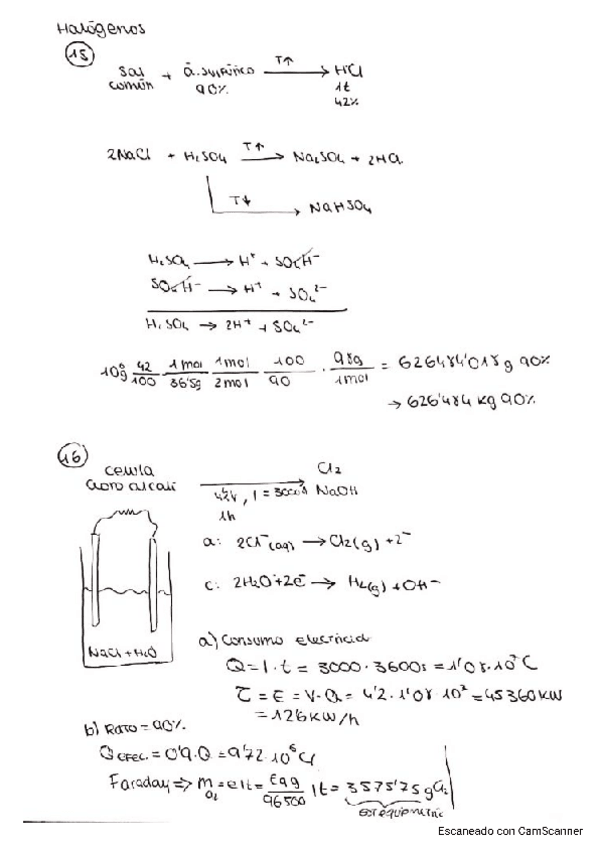 Halógenos
15
Sal común + á. sulfúrico 90% T↑ → HCl 1t 42%
2NaCl + H₂SO₄ T↑ → Na₂SO₄ + 2HCl
T↓ → NaHSO₄
H₂SO₄ → H⁺ + SO₄H⁻
SO₄H⁻ → H⁺ + SO₄²⁻
H₂SO₄ → 2H⁺ + SO₄²⁻
10⁶g 42/100 1mol/36'5g 1mol/2mol 100/90 · 98g/1mol = 626484'018g 90%
→ 626'484 kg 90%
16
Celula cloro alcali 4'2V, I = 3000A 1h → Cl₂ NaOH
a: 2Cl⁻(aq) → Cl₂(g) + 2⁻
c: 2H₂O + 2e⁻ → H₂(g) + OH⁻
NaCl + H₂O
a) Consumo electricidad
Q = I · t = 3000 · 3600s = 1'08 · 10⁷ C
τ = E = V · Q = 4'2 · 1'08 · 10⁷ = 45360KW
= 12'6KW/h
b) Rdto = 90%
Q EFEC. = 0'9 · Q = 9'72 · 10⁶ C
Faraday ⇒ m = eIt = Eqg/96500 It = 3575'75 g Cl₂
estequiometric
Escaneado con CamScanner